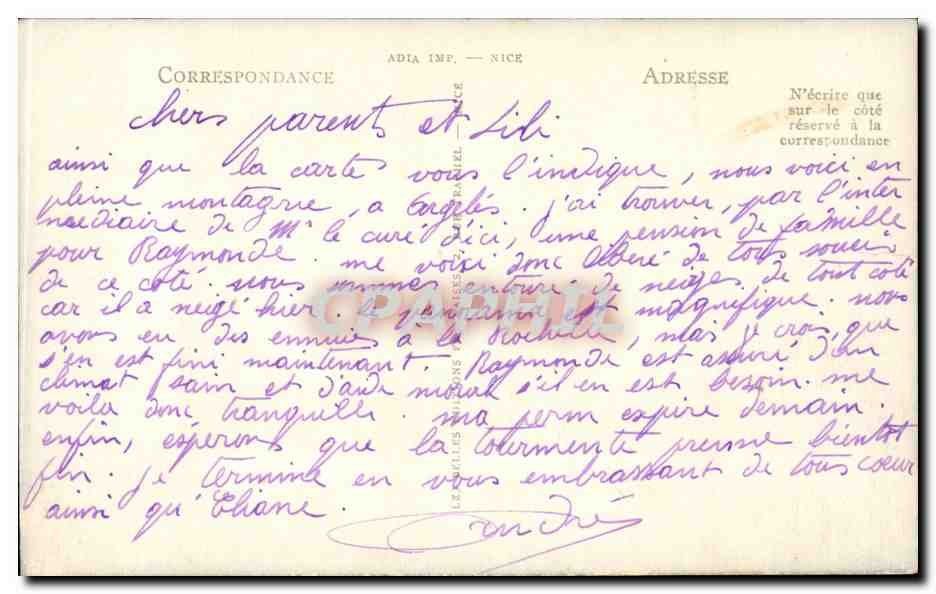 ADIA IMP. — NICE
CORRESPONDANCE
ADRESSE
N'écrire que
sur le côté
réservé à la
correspondance
chers parents et Lili
ainsi que la carte vous l'indique, nous voici en
pleine montagne, a Argelès. j'ai trouver, par l'inter
mediaire de Mr le curé d'ici, une pension de famille
pour Raymonde. me voici donc libéré de tous souci
de ce coté. nous sommes entouré de neiges de tout coté
car il a neigé hier. le panorama est magnifique. nous
avons eu des ennuies à la Rochelle, mais je crois que
s'en est fini maintenant. Raymonde est assuré d'un
climat sain et d'aide moral s'il en est besoin. me
voila donc tranquille. ma perm expire demain.
enfin, espérons que la tourmente prenne bientot
fin. je termine en vous embrassant de tous cœur
ainsi qu'Eliane.
André
CPARHIL